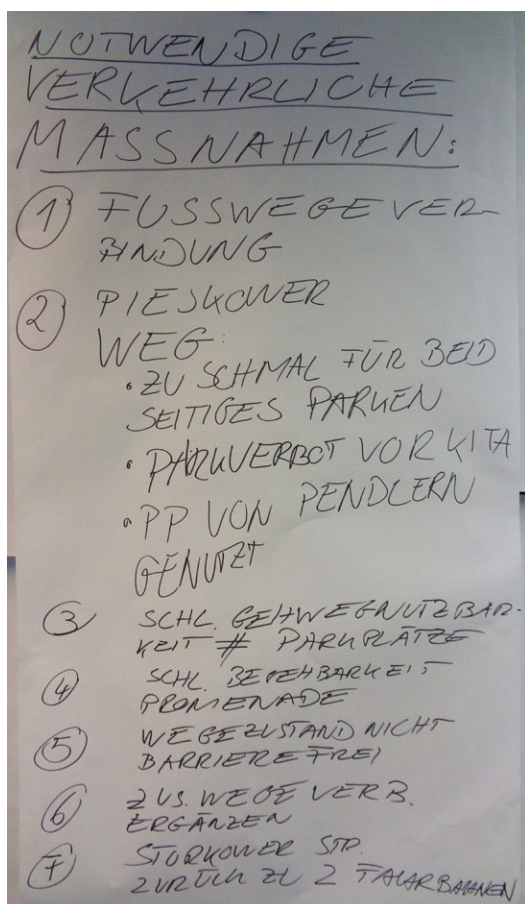 NOTWENDIGE
VERKEHRLICHE
MASSNAHMEN:
① FUSSWEGEVER-
BINDUNG
② PIESKOWER
WEG:
• ZU SCHMAL FÜR BEID
SEITIGES PARKEN
• PARKVERBOT VOR KITA
• PP VON PENDLERN
GENUTZT
③ SCHL. GEHWEGNUTZBAR-
KEIT # PARKPLÄTZE
④ SCHL. BEGEHBARKEIT
PROMENADE
⑤ WEGEZUSTAND NICHT
BARRIEREFREI
⑥ ZUS. WEGEVERB.
ERGÄNZEN
⑦ STORKOWER STR.
ZURÜCK ZU 2 FAHRBAHNEN